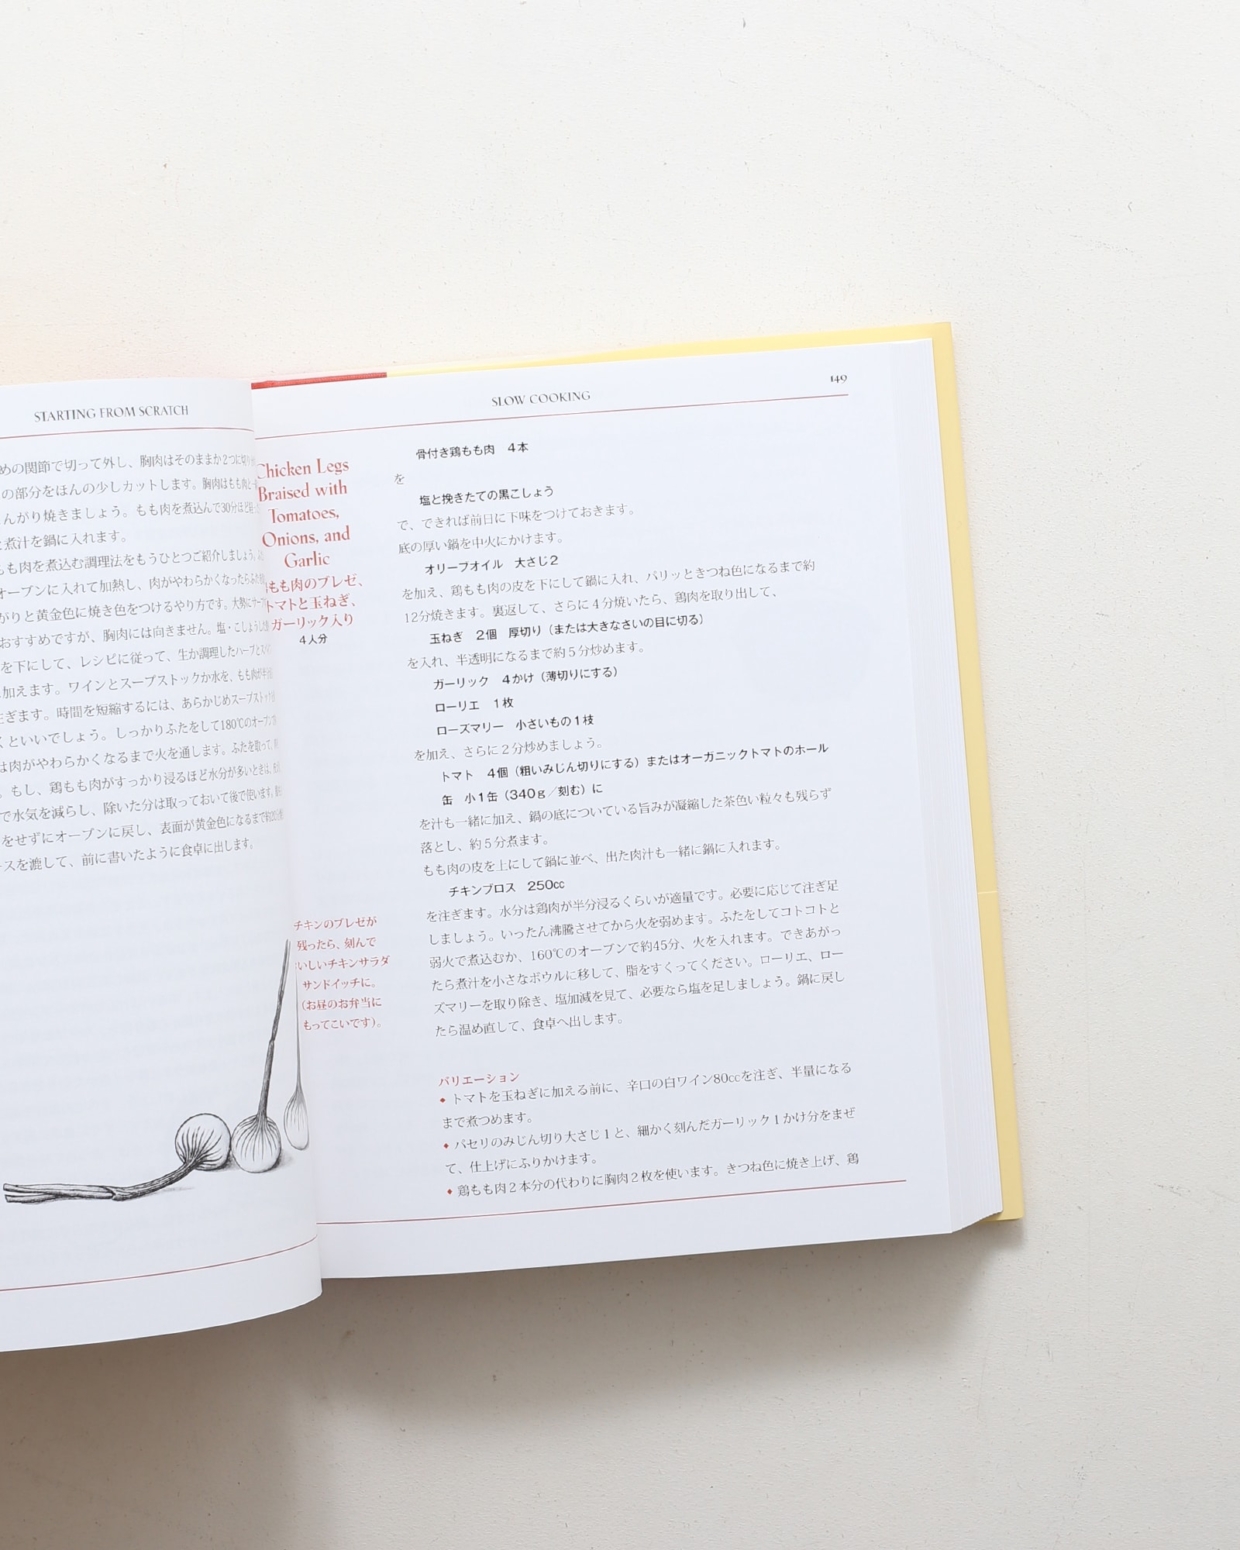 STARTING FROM SCRATCH
めの関節で切って外し、胸肉はそのままか2つに
の部分をほんの少しカットします。胸肉はもも肉と
んがり焼きましょう。もも肉を煮込んで30分ほど
煮汁を鍋に入れます。
も肉を煮込む調理法をもうひとつご紹介しましょう。
オーブンに入れて加熱し、肉がやわらかくなったら
がりと黄金色に焼き色をつけるやり方です。
おすすめですが、胸肉には向きません。塩・こしょう
を下にして、レシピに従って、生か調理したハーブと
加えます。ワインとスープストックか水を、もも肉が
注ぎます。時間を短縮するには、あらかじめスープストック
くといいでしょう。しっかりふたをして180℃のオーブン
は肉がやわらかくなるまで火を通します。ふたを取って、
。もし、鶏もも肉がすっかり浸るほど水分が多いときは、
で水気を減らし、除いた分は取っておいて後で使います。
をせずにオーブンに戻し、表面が黄金色になるまで
ースを漉して、前に書いたように食卓に出します。
SLOW COOKING
149
Chicken Legs
Braised with
Tomatoes,
Onions, and
Garlic
もも肉のブレゼ、
トマトと玉ねぎ、
ガーリック入り
4人分
骨付き鶏もも肉　4本
を
塩と挽きたての黒こしょう
で、できれば前日に下味をつけておきます。
底の厚い鍋を中火にかけます。
オリーブオイル　大さじ2
を加え、鶏もも肉の皮を下にして鍋に入れ、パリッときつね色になるまで約
12分焼きます。裏返して、さらに4分焼いたら、鶏肉を取り出して、
玉ねぎ　2個　厚切り（または大きなさいの目に切る）
を入れ、半透明になるまで約5分炒めます。
ガーリック　4かけ（薄切りにする）
ローリエ　1枚
ローズマリー　小さいもの1枝
を加え、さらに2分炒めましょう。
トマト　4個（粗いみじん切りにする）またはオーガニックトマトのホール
缶　小1缶（340g／刻む）に
を汁も一緒に加え、鍋の底についている旨みが凝縮した茶色い粒々も残らず
落とし、約5分煮ます。
もも肉の皮を上にして鍋に並べ、出た肉汁も一緒に鍋に入れます。
チキンブロス　250cc
を注ぎます。水分は鶏肉が半分浸るくらいが適量です。必要に応じて注ぎ足
しましょう。いったん沸騰させてから火を弱めます。ふたをしてコトコトと
弱火で煮込むか、160℃のオーブンで約45分、火を入れます。できあがっ
たら煮汁を小さなボウルに移して、脂をすくってください。ローリエ、ロー
ズマリーを取り除き、塩加減を見て、必要なら塩を足しましょう。鍋に戻し
たら温め直して、食卓へ出します。
チキンのブレゼが
残ったら、刻んで
いしいチキンサラダ
サンドイッチに。
（お昼のお弁当に
もってこいです）。
バリエーション
◆ トマトを玉ねぎに加える前に、辛口の白ワイン80ccを注ぎ、半量になる
まで煮つめます。
◆ パセリのみじん切り大さじ1と、細かく刻んだガーリック1かけ分をまぜ
て、仕上げにふりかけます。
◆ 鶏もも肉2本分の代わりに胸肉2枚を使います。きつね色に焼き上げ、鶏